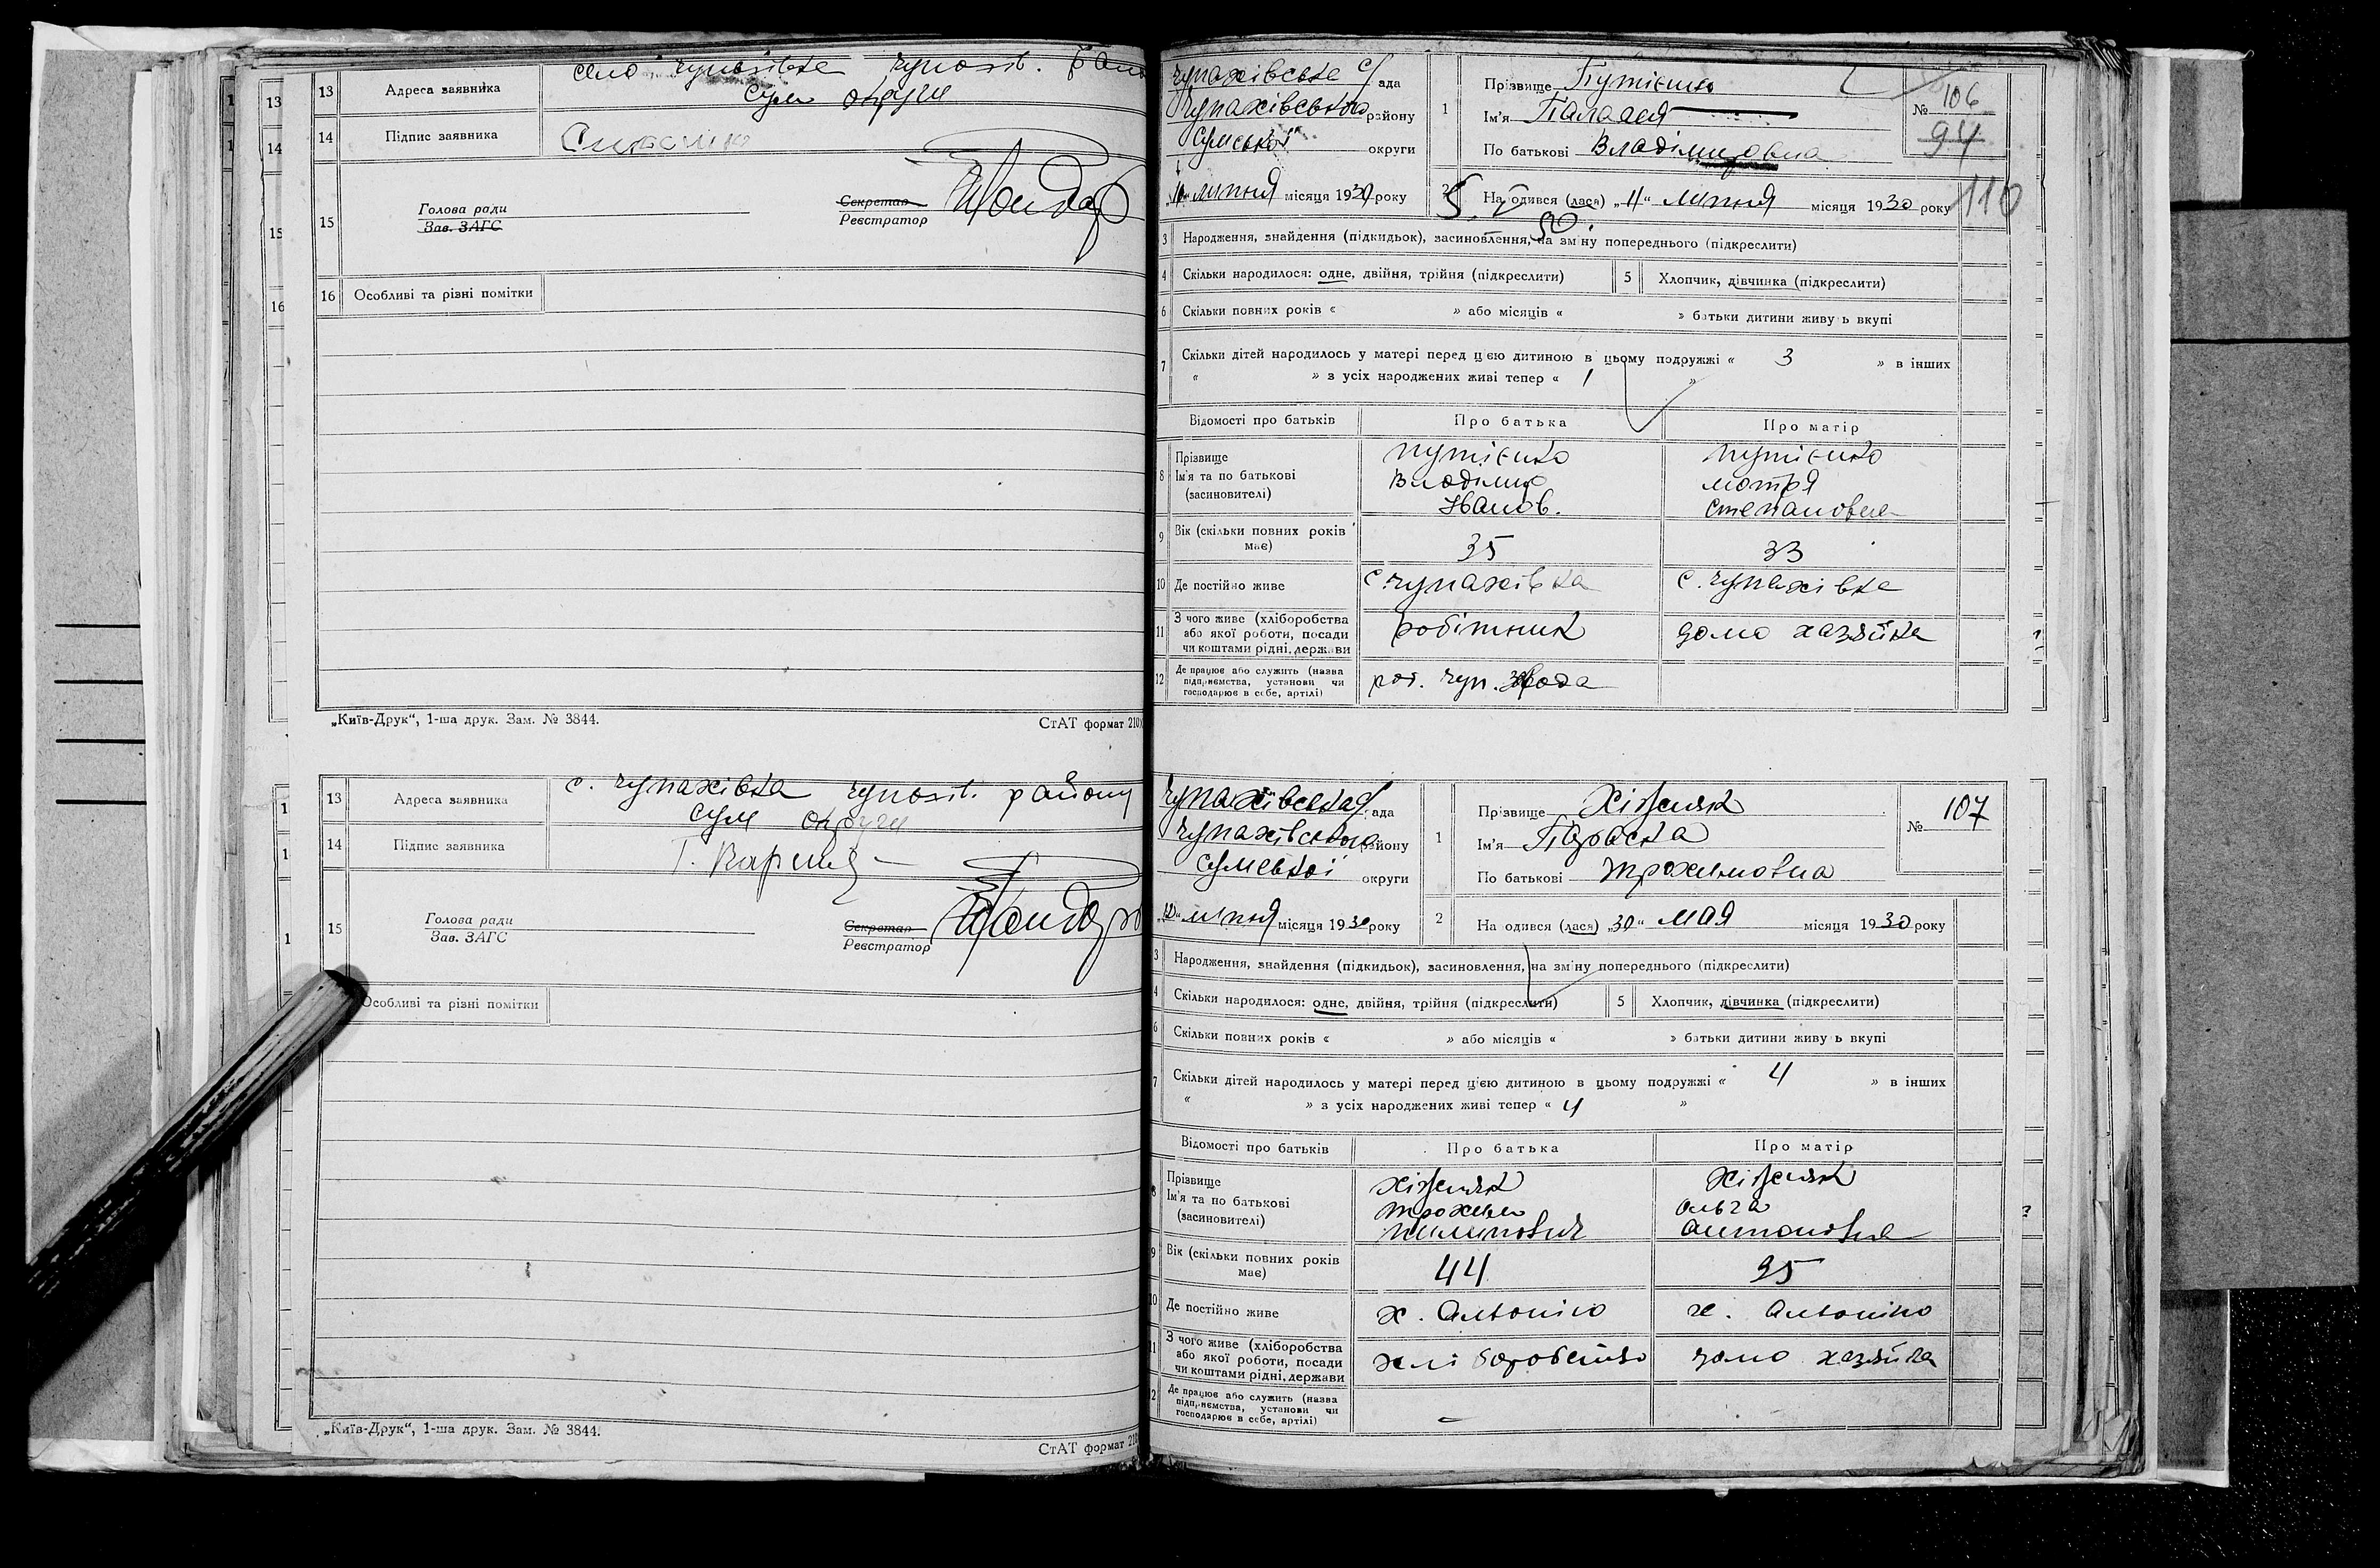 13 Адреса заявника село Чупахівка Чупахів. район
Сум округи
14 Підпис заявника
15 Голова ради
Зав. ЗАГС
Секретар
Реєстратор
16 Особливі та різні помітки
„Київ-Друк“, 1-ша друк. Зам. № 3844.
СтАТ формат 210
13 Адреса заявника с. Чупахівка Чупахів. району
Сум округи
14 Підпис заявника
15 Голова ради
Зав. ЗАГС
Секретар
Реєстратор
Особливі та різні помітки
„Київ-Друк“, 1-ша друк. Зам. № 3844.
СтАТ формат 210
Чупахівська с/рада
Чупахівського району
Сумської округи
липня місяця 1930 року
1 Прізвище Путієнко
Ім'я Палагея
По батькові Владіміровна
№ 106
94
116
2 На одився (лася) „4“ липня місяця 1930 року
3 Народження, знайдення (підкидьок), засиновлення, на зміну попереднього (підкреслити)
4 Скільки народилося: одне, двійня, трійня (підкреслити) 5 Хлопчик, дівчинка (підкреслити)
6 Скільки повних років « » або місяців « » батьки дитини живуть вкупі
7 Скільки дітей народилось у матері перед цією дитиною в цьому подружжі « 3 » в інших
« » з усіх народжених живі тепер « 1 »
Відомості про батьків Про батька Про матір
8 Прізвище Ім'я та по батькові (засиновителі)
Путієнко Владімир Іванов.
Путієнко Мотря Степановна
9 Вік (скільки повних років має) 35 33
10 Де постійно живе с. Чупахівка с. Чупахівка
11 З чого живе (хліборобства або якої роботи, посади чи коштами рідні, держави робітник домо хазяйка
12 Де працює або служить (назва підприємства, установи чи господарює в себе, артілі) роб. Чуп. завода
Чупахівська с/рада
Чупахівського району
Сумської округи
„10“ липня місяця 1930 року
1 Прізвище Хіжняк
Ім'я Параска
По батькові Трохимовна
№ 107
2 На одився (лася) „30“ мая місяця 1930 року
3 Народження, знайдення (підкидьок), засиновлення, на зміну попереднього (підкреслити)
4 Скільки народилося: одне, двійня, трійня (підкреслити) 5 Хлопчик, дівчинка (підкреслити)
6 Скільки повних років « » або місяців « » батьки дитини живуть вкупі
7 Скільки дітей народилось у матері перед цією дитиною в цьому подружжі « 4 » в інших
« » з усіх народжених живі тепер « 4 »
Відомості про батьків Про батька Про матір
8 Прізвище Ім'я та по батькові (засиновителі)
Хіжняк Трохим Пилипович
Хіжняк Ольга Антоновна
9 Вік (скільки повних років має) 44 35
10 Де постійно живе х. х.
11 З чого живе (хліборобства або якої роботи, посади чи коштами рідні, держави хліборобство домо хазяйка
12 Де працює або служить (назва підприємства, установи чи господарює в себе, артілі) –